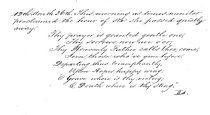 12th Month 26th. This morning as terms monitor
proclaimed the hour of six she passed quietly
away.
Thy prayer is granted gentle one,
Thy sorrows now are o'er,
Thy Heavenly Father calls thee, come,
Join those who've gone before.
Departing thus triumphantly,
Upon Hope's happy wing,
O Grave where is thy victory
O Death where is thy sting.